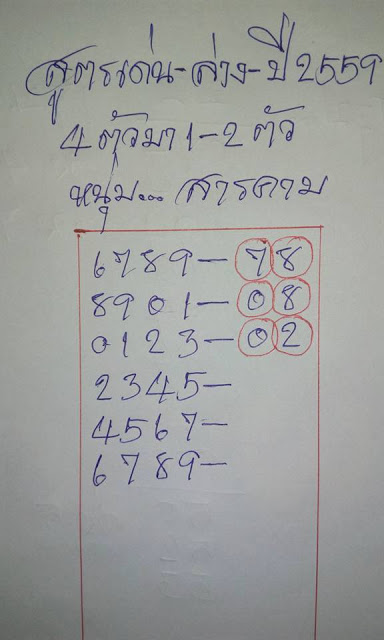 สูตรเด่น-ล่าง-ปี 2559
4 ตัวมา 1-2 ตัว
หนุ่ม... สารคาม
6789-78
8901-08
0123-02
2345-
4567-
6789-